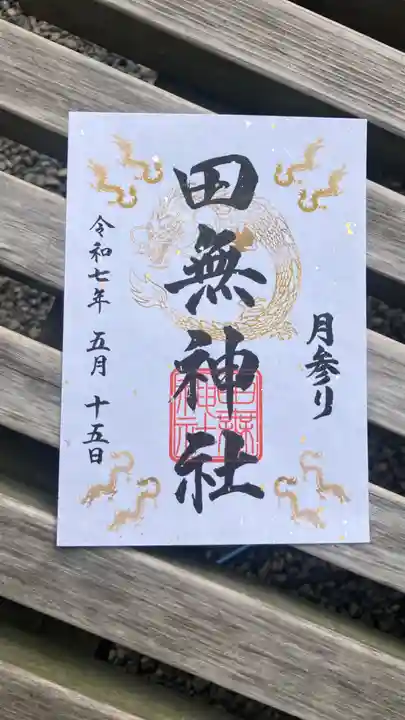 月参り
田無神社
令和七年 五月 十五日
田無神社